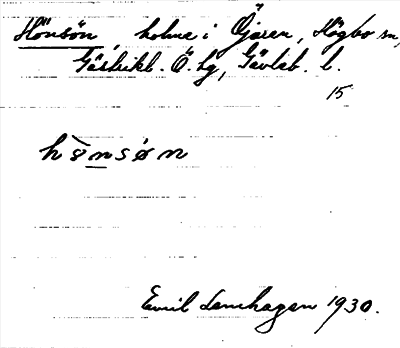 Hönsön, holme i Öjaren, Högbo sn,
Gästrikl. Ö. hg, Gävleb. l.
15
hö̀nsøn
Emil Lenhagen 1930.